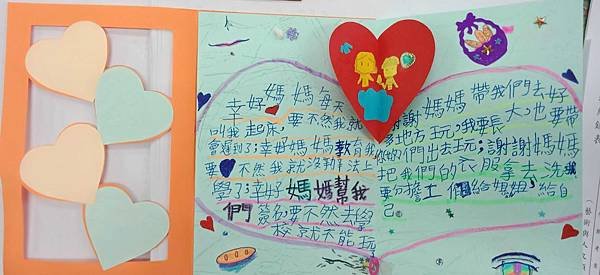 幸好媽媽每天
叫我起床,要不然我就
會遲到了;幸好媽媽教育我
要不然我就沒辦法上
學了;幸好媽媽幫我
們簽名要不然去學
校就不能玩
謝媽媽帶我們去好
多地方玩,我要長大,也要帶
你們出去玩;謝謝媽媽
把我們的衣服拿去洗
要分擔工 給 給自
己
(藝術與人文